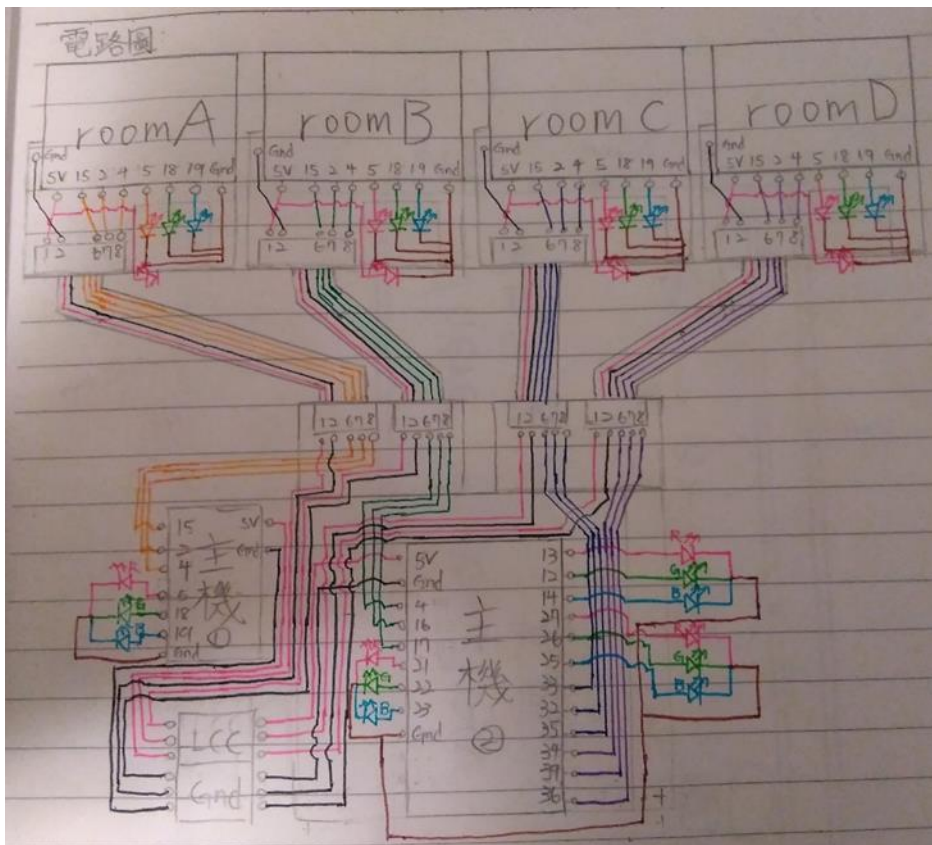 電路圖
roomA
Gnd
5V 15 2 4 5 18 19 Gnd
12 678
roomB
Gnd
5V 15 2 4 5 18 19 Gnd
12 678
room C
Gnd
5V 15 2 4 5 18 19 Gnd
12 678
roomD
Gnd
5V 15 2 4 5 18 19 Gnd
12 678
12678
12678
12678
12678
15
2
4
5
18
19
Gnd
5V
Gnd
主
機
①
R
G
B
LCC
Gnd
5V
Gnd
4
16
17
21
22
23
Gnd
主
機
②
G
B
13
12
14
27
26
25
33
32
35
34
39
36
R
G
B
R
G
B